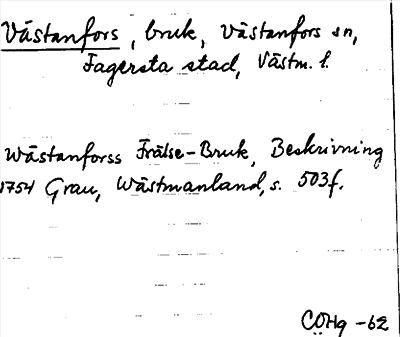 Västanfors, bruk, Västanfors sn,
Fagersta stad, Västm. l.
Wästanforss Frälse-Bruk, Beskrivning
1754 Grau, Wästmanland, s. 503f.
CÖHg -62